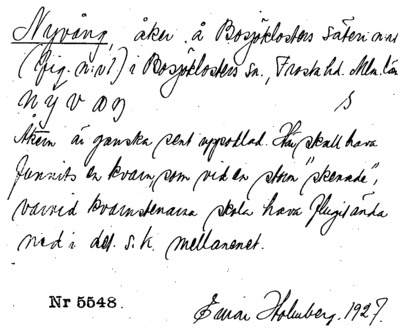 Nyvång, åker å Bosjöklosters säteri n:o1
(fig. n:o1) i Bosjöklosters sn., Frosta hd. Mlm. län
nyvaŋ s
Åkern är ganska sent uppodlad. Här skall hava
funnits en kvarn, som vid en storm "skenade",
varvid kvarnstenarna skola hava flugit ända
ned i det s.k. mellanenet.
Nr 5548. Einar Holmberg. 1927.